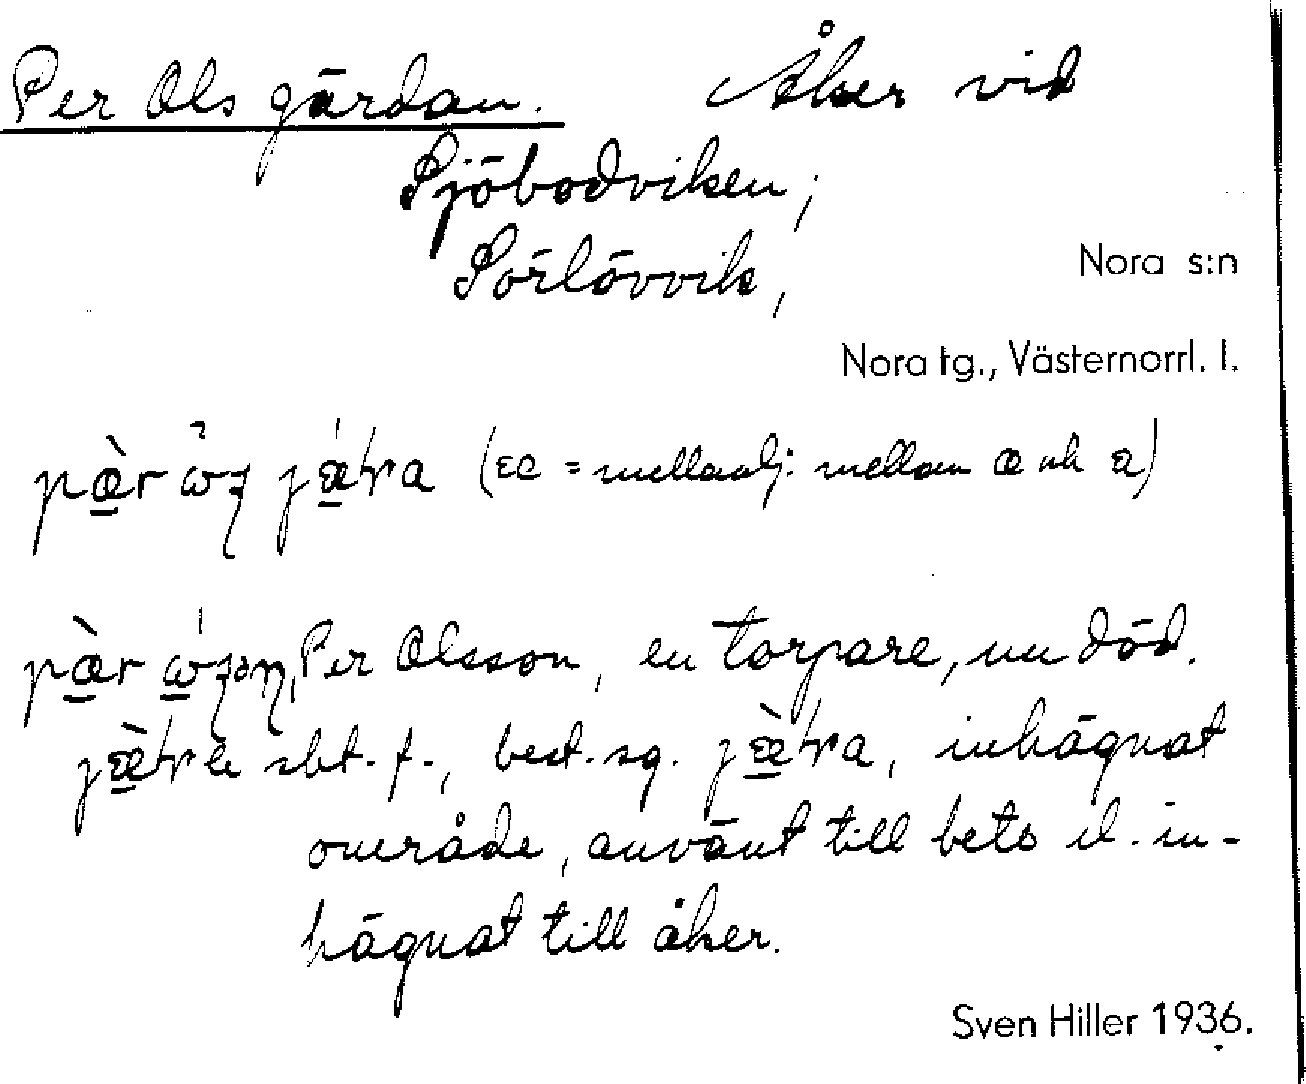 Per Ols gärdan. Åker vid
Sjöbodviken;
Sörlövvik,
Nora s:n
Nora tg., Västernorrl. l.
(ɛe = mellanlj: mellan æ och a)
Per Olsson, en torpare, nu död.
sbt. f., best. sg. inhägnat
område, använt till bete el. in-
hägnat till åker.
Sven Hiller 1936.